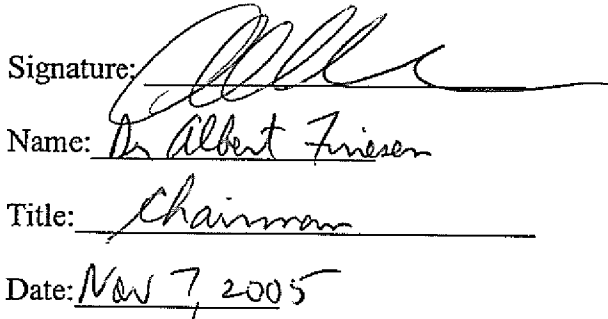 Signature:
Name: Dr Albert Friesen
Title: Chairman
Date: Nov 7, 2005